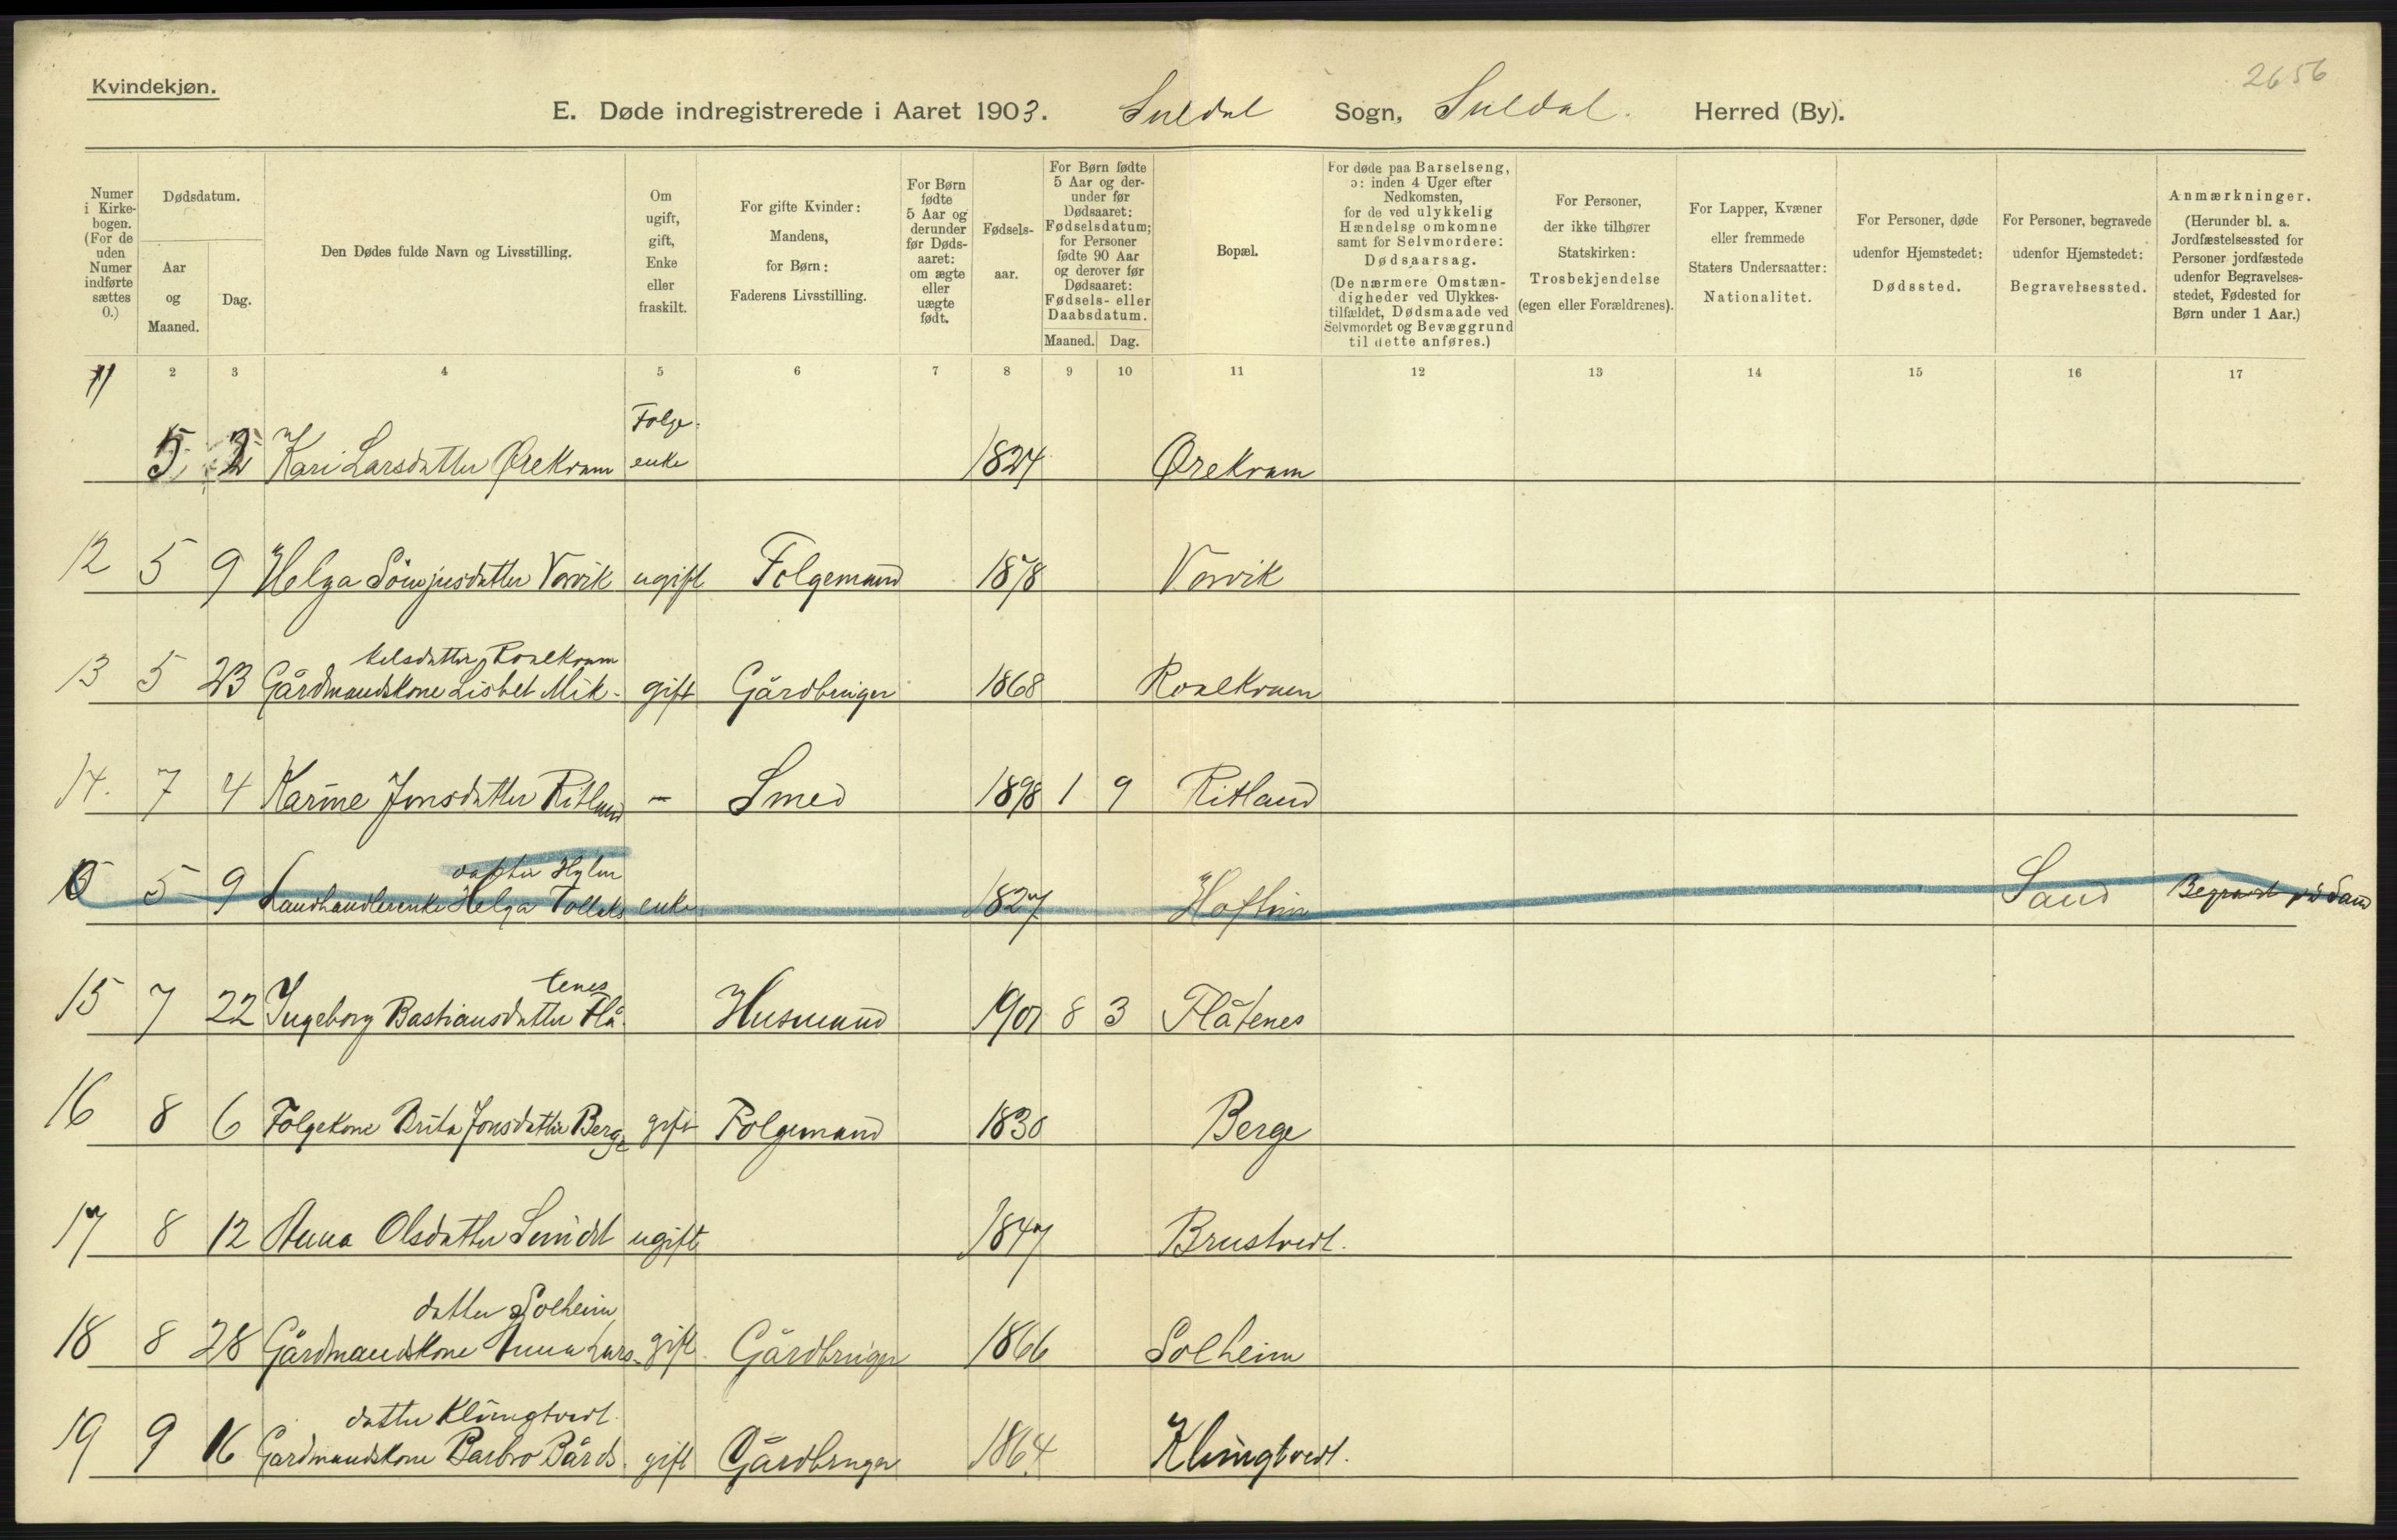 Kvindekjøn.
2656
E. Døde indregistrerede i Aaret 1903. Suldal Sogn, Suldal. Herred (By).
Numer i Kirkebogen. (For de uden Numer indførte sættes 0.)
Dødsdatum.
Aar og Maaned.
Dag.
Den Dødes fulde Navn og Livsstilling.
Om ugift, gift, Enke eller fraskilt.
For gifte Kvinder: Mandens, for Børn: Faderens Livsstilling.
For Børn fødte 5 Aar og derunder før Dødsaaret: om ægte eller uægte født.
Fødselsaar.
For Børn fødte 5 Aar og derunder før Dødsaaret: Fødselsdatum; for Personer fødte 90 Aar og derover før Dødsaaret: Fødsels- eller Daabsdatum.
Maaned. Dag.
Bopæl.
For døde paa Barselseng, ɔ: inden 4 Uger efter Nedkomsten, for de ved ulykkelig Hændelse omkomne samt for Selvmordere: Dødsaarsag. (De nærmere Omstændigheder ved Ulykkestilfældet, Dødsmaade ved Selvmordet og Bevæggrund til dette anføres.)
For Personer, der ikke tilhører Statskirken: Trosbekjendelse (egen eller Forældrenes).
For Lapper, Kvæner eller fremmede Staters Undersaatter: Nationalitet.
For Personer, døde udenfor Hjemstedet: Dødssted.
For Personer, begravede udenfor Hjemstedet: Begravelsessted.
Anmærkninger. (Herunder bl. a. Jordfæstelsessted for Personer jordfæstede udenfor Begravelsesstedet, Fødested for Børn under 1 Aar.)
2 3 4 5 6 7 8 9 10 11 12 13 14 15 16 17
11 5 2 Kari Larsdatter Ørekvam Folgeenke 1824 Ørekvam
12 5 9 Helga Vorvik ugift Folgemand 1878 Vorvik
kelsdatter Roalkvam
13 5 23 Gårdmandskone Lisbet Mik- gift Gårdbruger 1868 Roalkvam
14. 7 4 Karine Jonsdatter Ritland - Smed 1898 1 9 Ritland
datter Hylen
0 5 9 Landhandlerenke Helga Tollaks enke 1827 Sand Begravet på Sand
tenes
15 7 22 Ingeborg Bastiansdatter Flå- Husmand 1901 8 3 Flåtenes
16 8 6 Folgekone Brita Jonsdatter Berge gift Folgemand 1830 Berge
17 8 12 Anna Olsdatter ugift 1847 Brustvedt.
datter Solheim
18 8 28 Gårdmandskone Anna Lars- gift. Gårdbruger 1866 Solheim
datter Klungtvedt.
19 9 16 Gardmandskone Barbro Bårds- gift Gårdbruger 1864 Klungtvedt.